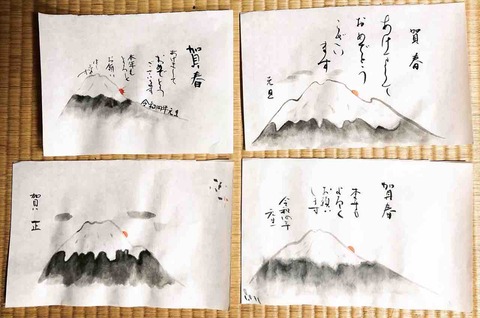 賀春
あけまして
おめでとう
ございます
本年も
お願い
令和四年 元旦
賀春
あけまして
おめでとう
ござい
ます
元旦
賀正
賀春
本年も
よろしく
お願い
します
令和四年
元旦